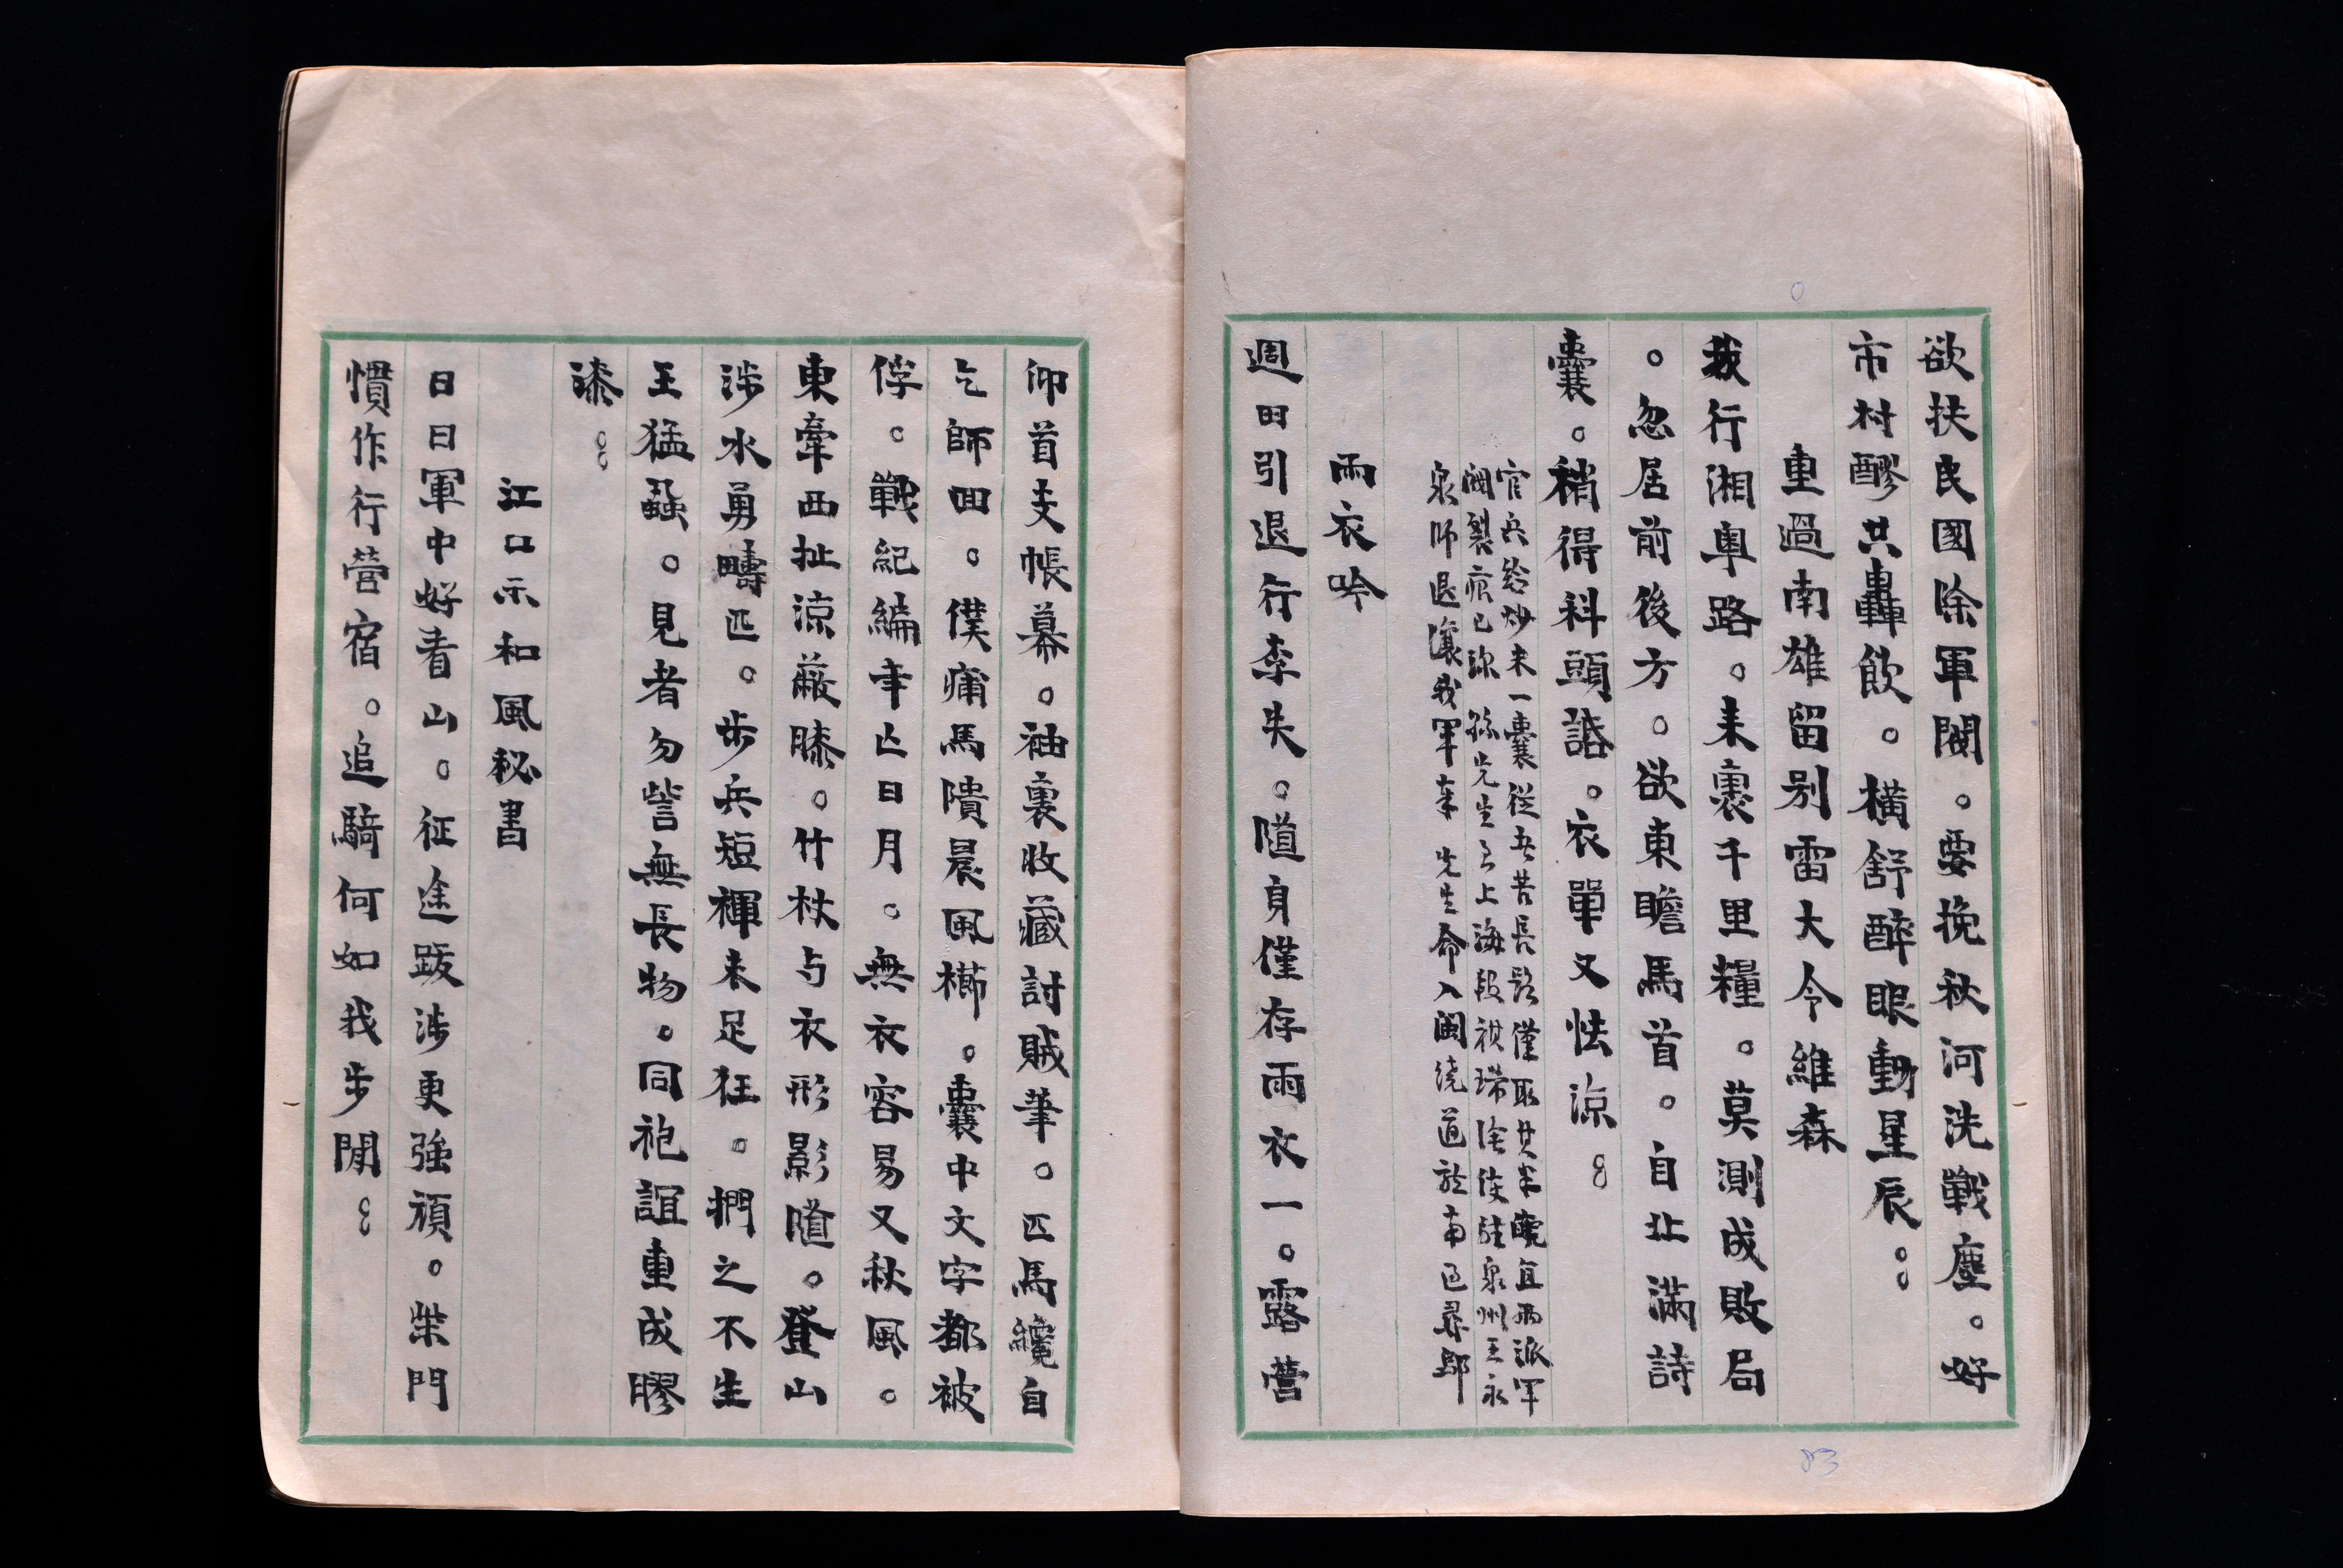 欲扶民國除軍閥。要挽秋河洗戰塵。好
市村醪共轟飲。橫舒醉眼動星辰。
重過南雄留別雷大令維森
我行湘粵路。未裹千里糧。莫測成敗局
。忽居前後方。欲東瞻馬首。自北滿詩
囊。稍得科頭諮。衣單又怯涼。
官兵給炒未一囊從吾苦長路僅取其半曉宜兩派軍
閥裂痕已深孫先生之上海段祺瑞侄使駐泉州王永
泉師退讓我軍奉先生命入閩繞道於南
雨衣吟
週田引退行李失。隨身僅存雨衣一。露營
仰首支帳幕。袖裏收藏討賊筆。匹馬纔自
乞師回。僕痡馬隤晨風櫛。囊中文字都被
俘。戰紀編年亡日月。無衣容易又秋風。
東牽西扯涼蔽膝。竹杖与衣形影隨。登山
涉水勇疇匹。步兵短褌未足狂。捫之不生
王猛蝨。見者勿訾無長物。同袍誼重成膠
漆。
江口示和風秘書
日日軍中好看山。征途跋涉更強頑。柴門
慣作行營宿。追騎何如我步閒。
83